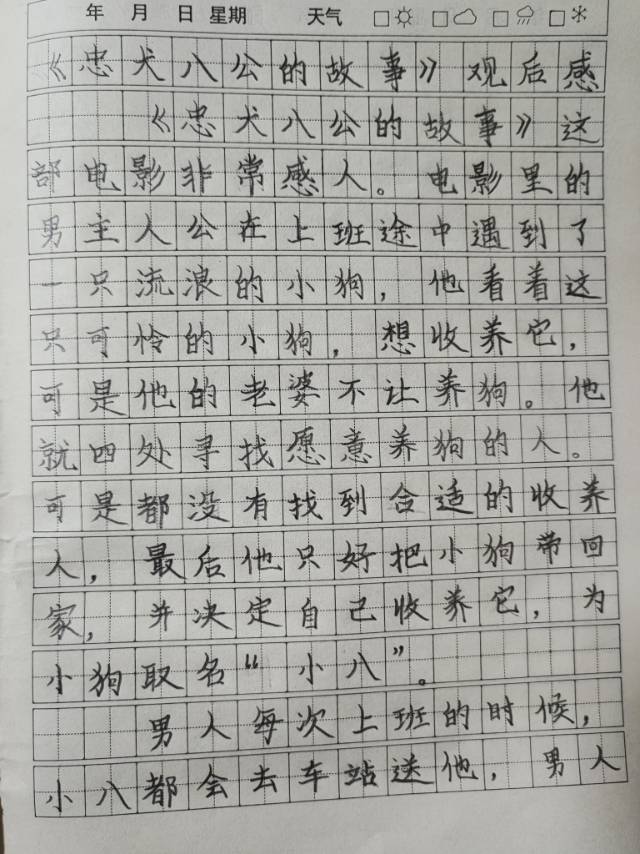 年 月 日 星期 天气
《忠犬八公的故事》观后感
《忠犬八公的故事》这
部电影非常感人。电影里的
男主人公在上班途中遇到了
一只流浪的小狗，他看着这
只可怜的小狗，想收养它，
可是他的老婆不让养狗。他
就四处寻找愿意养狗的人。
可是都没有找到合适的收养
人，最后他只好把小狗带回
家，并决定自己收养它，为
小狗取名“小八”。
男人每次上班的时候，
小八都会去车站送他，男人